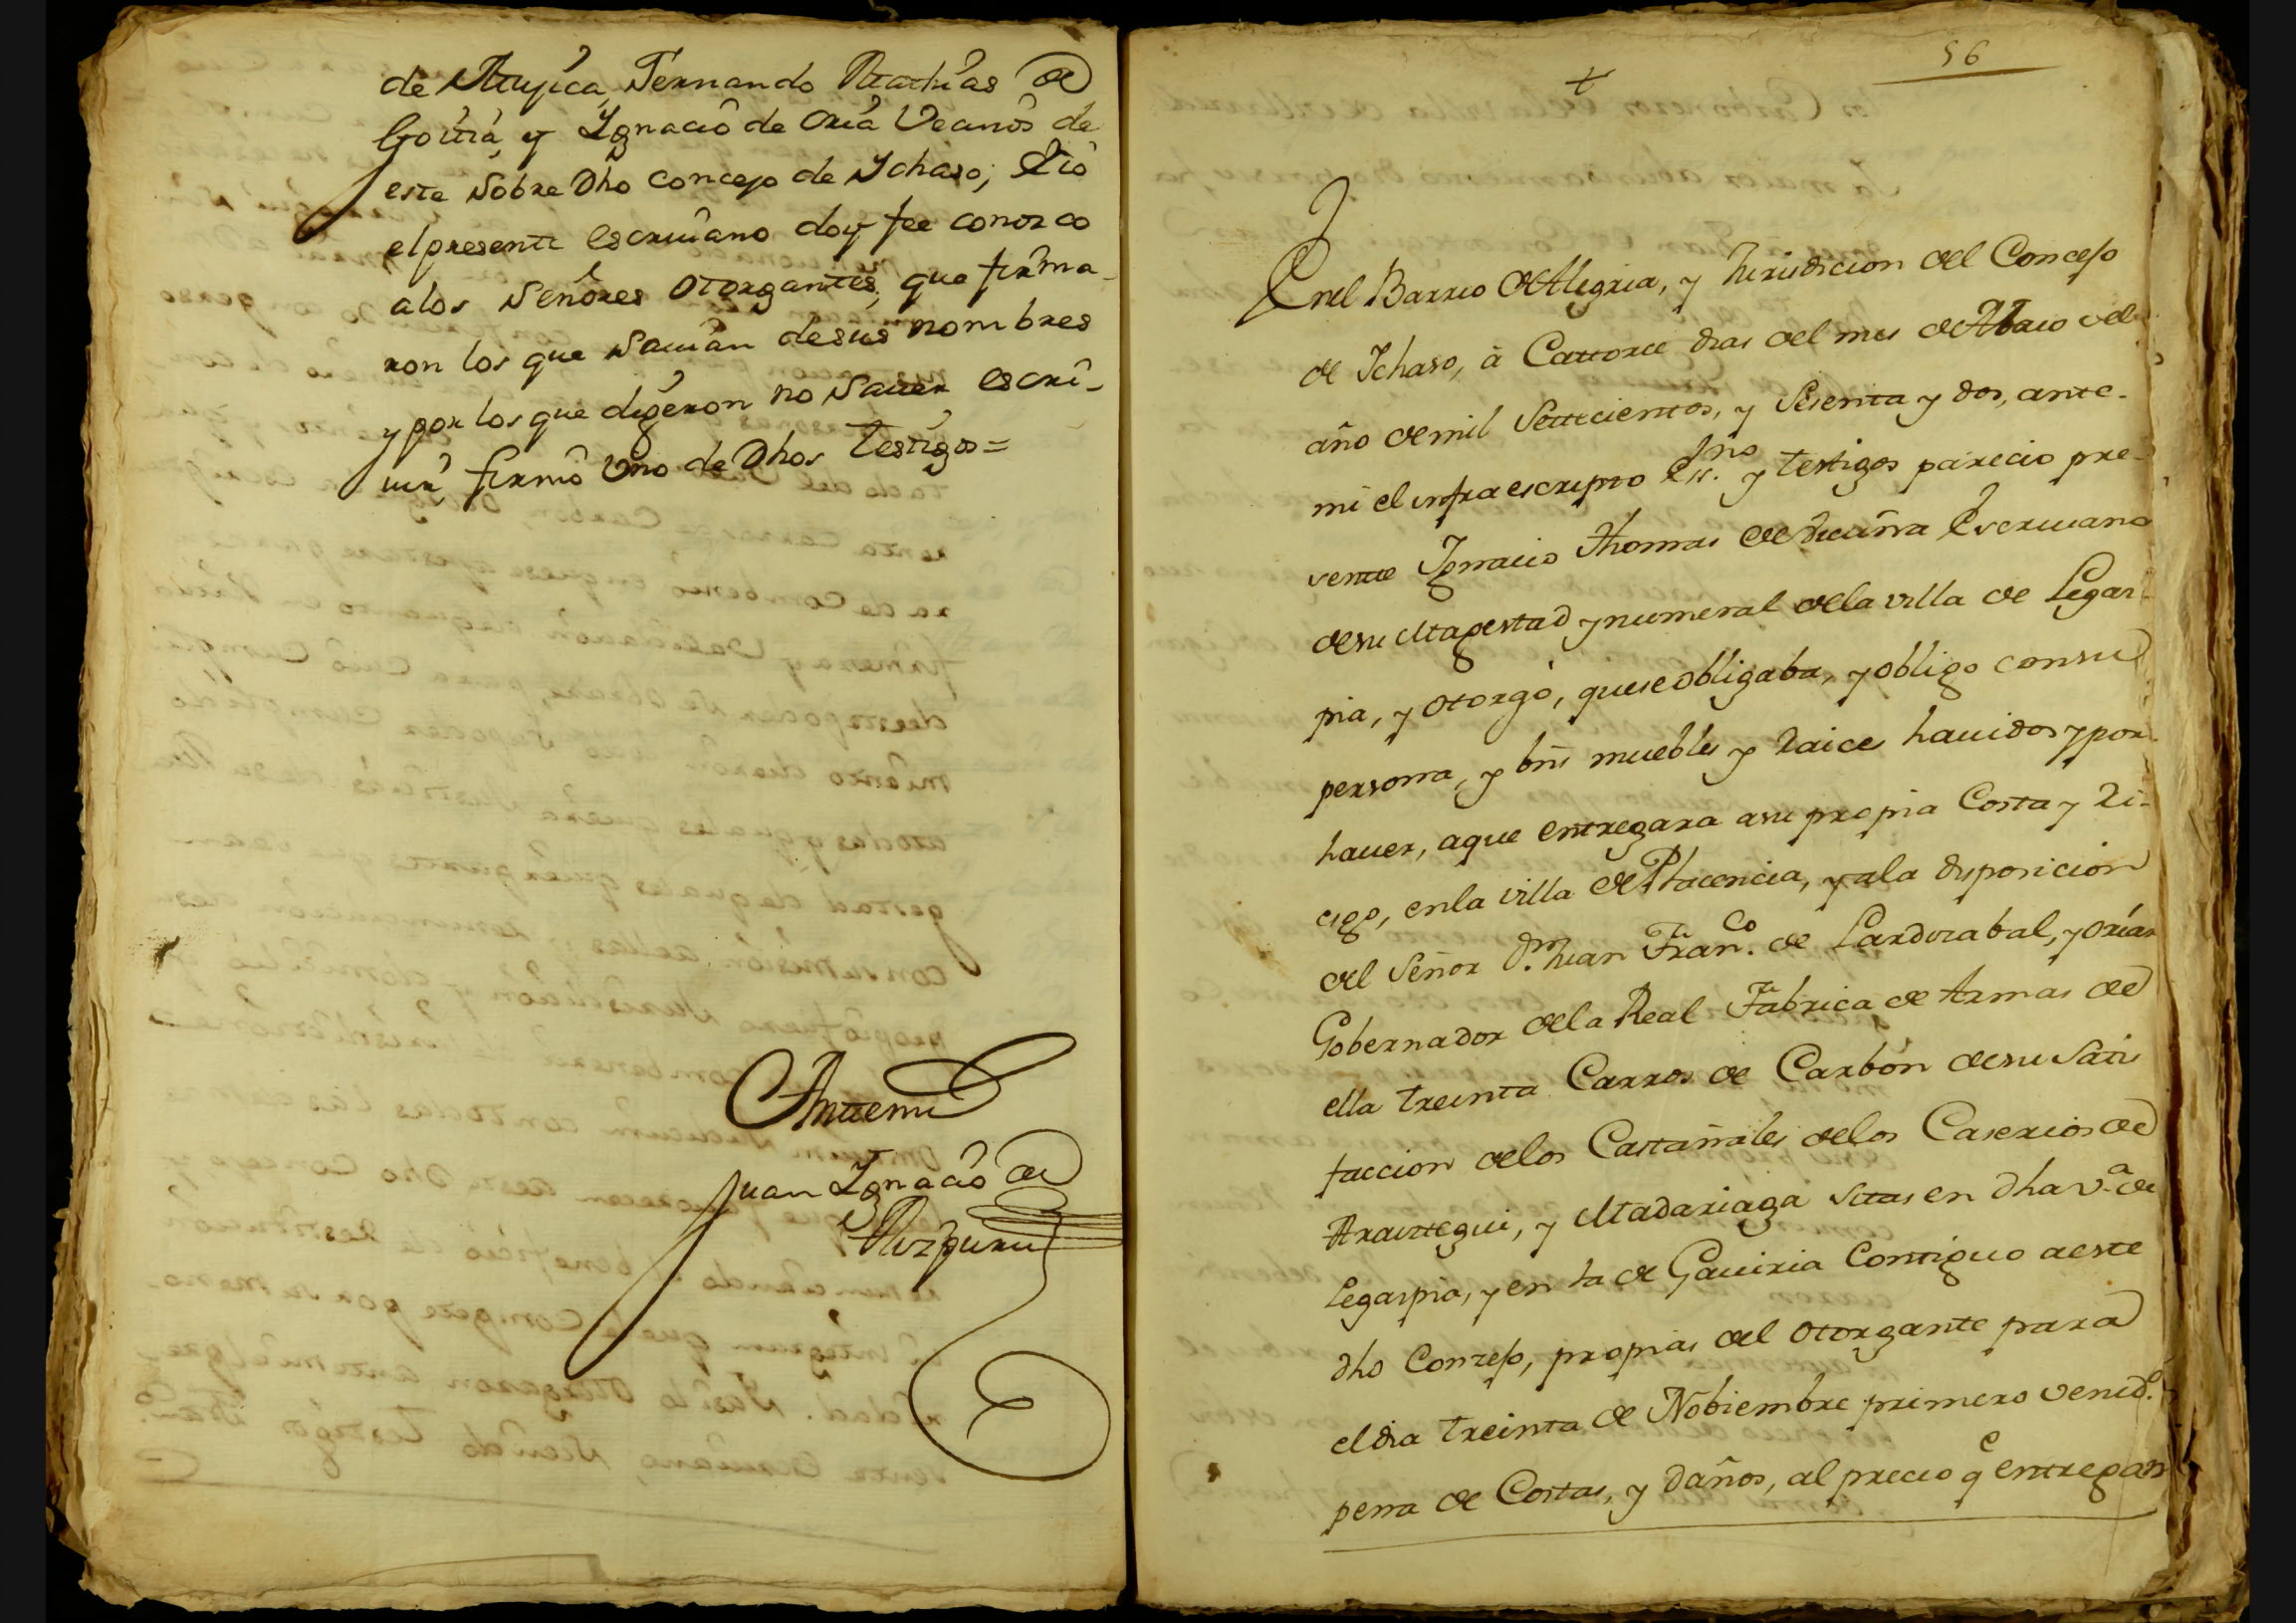 de Mujica, Fernando Mathias de
Goitia, y Ygnacio de Oria Vecinos de
este sobre Dho concejo de Ychaso; E Yo
el presente escriuano doy fee conozco
alos Señores otorgantes, que firma-
ron los que sauian desus nombres
y por los que digeron no sauer escri-
uir, firmó Uno de Dhos testigos=
Antemi
Juan Ygnacio de
Aizpuru
56
+
Enel Barrio de Alegria, y Jurisdicion del Concejo
de Ichaso, à Catorce dias del mes de Maio del
año de mil Setecientos, y Sesenta y dos, ante-
mi el infraescripto Essno. y testigos parecio pre-
sente Ignacio Thomas de Vicuña Escriuano
desu Magestad y numeral dela villa de Legaz-
pia, y otorgó, quese obligaba, y obligo consu
persona, y bñs muebles y raices hauidos y por
hauer, aque entregara asu propia Costa y Ri-
esgo, enla villa de Placencia, y ala disposicion
del Señor Dn. Juan Franco. de Lardizabal, y Oriar
Gobernador dela Real Fabrica de Armas de
ella treinta Carros de Carbón desu Satis
faccion delos Castañales delos Caserios de
Araiztegui, y Madariaga sitas en dha va. de
Legazpia, y en la de Gauiria Contiguo aeste
dho Concejo, propias del otorgante para
el dia treinta de Nobiembre primero venido.
pena de Costas, y daños, al precio qe entregan